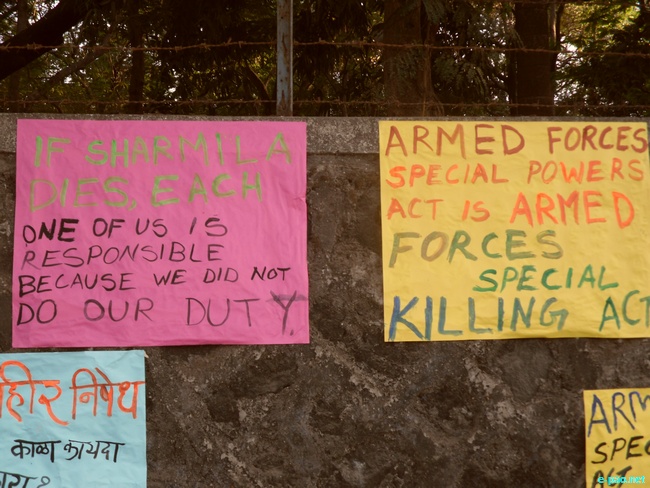 IF SHARMILA
DIES, EACH
ONE OF US IS
RESPONSIBLE
BECAUSE WE DID NOT
DO OUR DUTY.
ARMED FORCES
SPECIAL POWERS
ACT IS ARMED
FORCES
SPECIAL
KILLING ACT
निषेध
काळा कायदा
ARM
SPEC
ACT